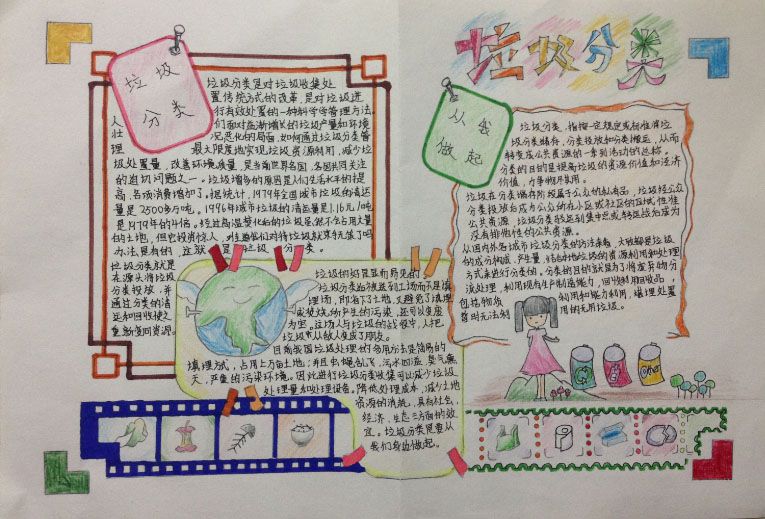 垃圾分类
垃圾
分类
垃圾分类是对垃圾收集处
置传统方式的改革,是对垃圾进
行有效处置的一种科学管理方法。
人们面对日益增长的垃圾产量和环境
状况恶化的局面,如何通过垃圾分类管
理最大限度地实现垃圾资源利用,减少垃
圾处置量,改善环境质量,是当前世界各国共同关注
的迫切问题之一。垃圾增多的原因是人们生活水平的提
高,各项消费增加了。据统计,1979年全国城市垃圾的清运
量是2500多万吨。1996年城市垃圾的清运量是1.16亿吨
是1979年的4倍。经过高温焚化后的垃圾虽然不会占用大量
的土地,但它投资惊人,
难道我们对待垃圾就束手无策了吗
办法是有的,这就是垃圾分类。
垃圾分类就是
在源头将垃圾
分类投放,并
通过分类的清
运和回收使之
重新变回资源。
从我
做起
垃圾分类,指按一定规定或标准将垃
圾分类储存,分类投放和分类搬运,从而
转变成公共资源的一系列活动的总称。
分类的目的是提高垃圾的资源价值和经济
价值,力争物尽其用。
垃圾在分类储存阶段属于公众的私有品,垃圾经公众
分类投放后成为公众所在小区或社区的区域性准
公共资源,垃圾分类转运到集中点或转运站后成为
没有排他性的公共资源。
从国内外各城市垃圾分类的方法来看,大致都是垃圾
的成分构成、产生量,结合当地垃圾的资源利用和处理
方式来进行分类的。分类的目的就是为了将废弃物分
流处理,利用现有生产制造能力,回收利用回收品,
包括物质利用和能力利用,填埋处置
暂时无法利用的无用垃圾。
垃圾的好是显而易见的
垃圾分类后被送到工场而不是填
埋场,即省下了土地,又避免了填埋
或焚烧所产生的污染,还可以变废
为宝。这场人与垃圾的战役中,人把
垃圾从敌人变成了朋友。
目前我国垃圾处理的多用方法是简易的
填埋方式,占用上万亩土地;并且虫蝇乱飞,污水四溢,臭气熏
天,严重的污染环境。因此进行垃圾分类收集可以减少垃圾
处理量和处理设备。降低处理成本,减少土地
资源的消耗,具有社会,
经济,生态三方面的效
宜。垃圾分类是要从
我们身边做起。
Other